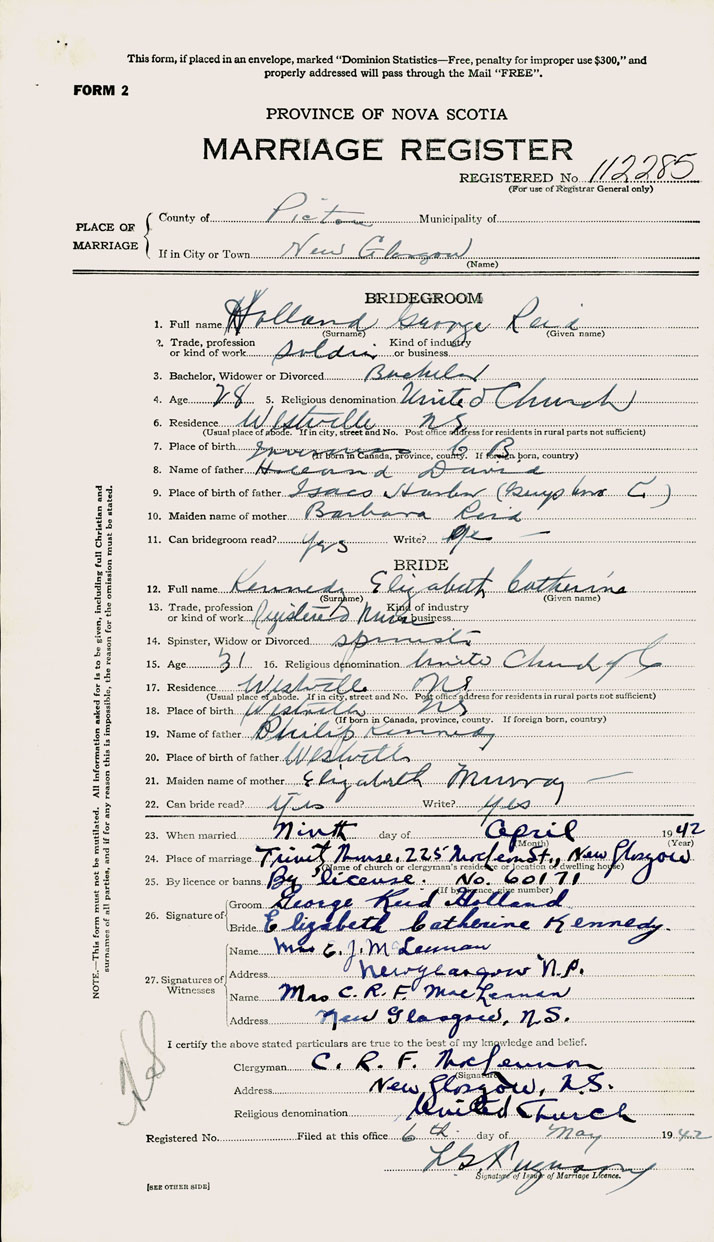 This form, if placed in an envelope, marked "Dominion Statistics—Free, penalty for improper use $300," and
properly addressed will pass through the Mail "FREE".
FORM 2
PROVINCE OF NOVA SCOTIA
MARRIAGE REGISTER
REGISTERED No. 112285
(For use of Registrar General only)
PLACE OF MARRIAGE
County of Pictou Municipality of
If in City or Town New Glasgow
(Name)
BRIDEGROOM
1. Full name Holland George Reid
(Surname) (Given name)
2. Trade, profession or kind of work Soldier Kind of industry or business
3. Bachelor, Widower or Divorced Bachelor
4. Age 28 5. Religious denomination United Church
6. Residence Westville NS
(Usual place of abode. If in city, street and No. Post office address for residents in rural parts not sufficient)
7. Place of birth C B
(If born in Canada, province, county. If foreign born, country)
8. Name of father Holland David
9. Place of birth of father Isaacs Harbor (Guysboro C)
10. Maiden name of mother Barbara Reid
11. Can bridegroom read? Yes Write?
BRIDE
12. Full name Kennedy Elizabeth Catherine
(Surname) (Given name)
13. Trade, profession or kind of work Registered Nurse Kind of industry or business
14. Spinster, Widow or Divorced spinster
15. Age 31 16. Religious denomination United Church of C
17. Residence Westville NS
(Usual place of abode. If in city, street and No. Post office address for residents in rural parts not sufficient)
18. Place of birth Westville NS
(If born in Canada, province, county. If foreign born, country)
19. Name of father Philip Kennedy
20. Place of birth of father Westville
21. Maiden name of mother Elizabeth Murray
22. Can bride read? Yes Write? Yes
23. When married Ninth day of April 1942
(Month) (Year)
24. Place of marriage 225 St., New Glasgow
(Name of church or clergyman's residence or location of dwelling house)
25. By licence or banns By license. No. 60171
(If by licence, give number)
26. Signature of
Groom George Reid Holland
Bride Elizabeth Catherine Kennedy.
27. Signatures of Witnesses
Name Mrs E. J. McLennan
Address New Glasgow N.S.
Name Mrs C. R. F. MacLennan
Address New Glasgow, N.S.
I certify the above stated particulars are true to the best of my knowledge and belief.
Clergyman C. R. F. MacLennon
(Signature)
Address New Glasgow, N.S.
Religious denomination United Church
Registered No. Filed at this office 6th day of May 1942
Signature of Issuer of Marriage Licence.
[SEE OTHER SIDE]
NOTE.—This form must not be mutilated. All information asked for is to be given, including full Christian and
surnames of all parties, and if for any reason this is impossible, the reason for the omission must be stated.